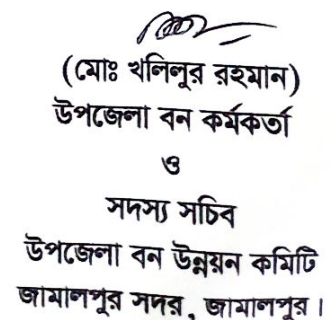 (মোঃ খলিলুর রহমান)
উপজেলা বন কর্মকর্তা
ও
সদস্য সচিব
উপজেলা বন উন্নয়ন কমিটি
জামালপুর সদর, জামালপুর।